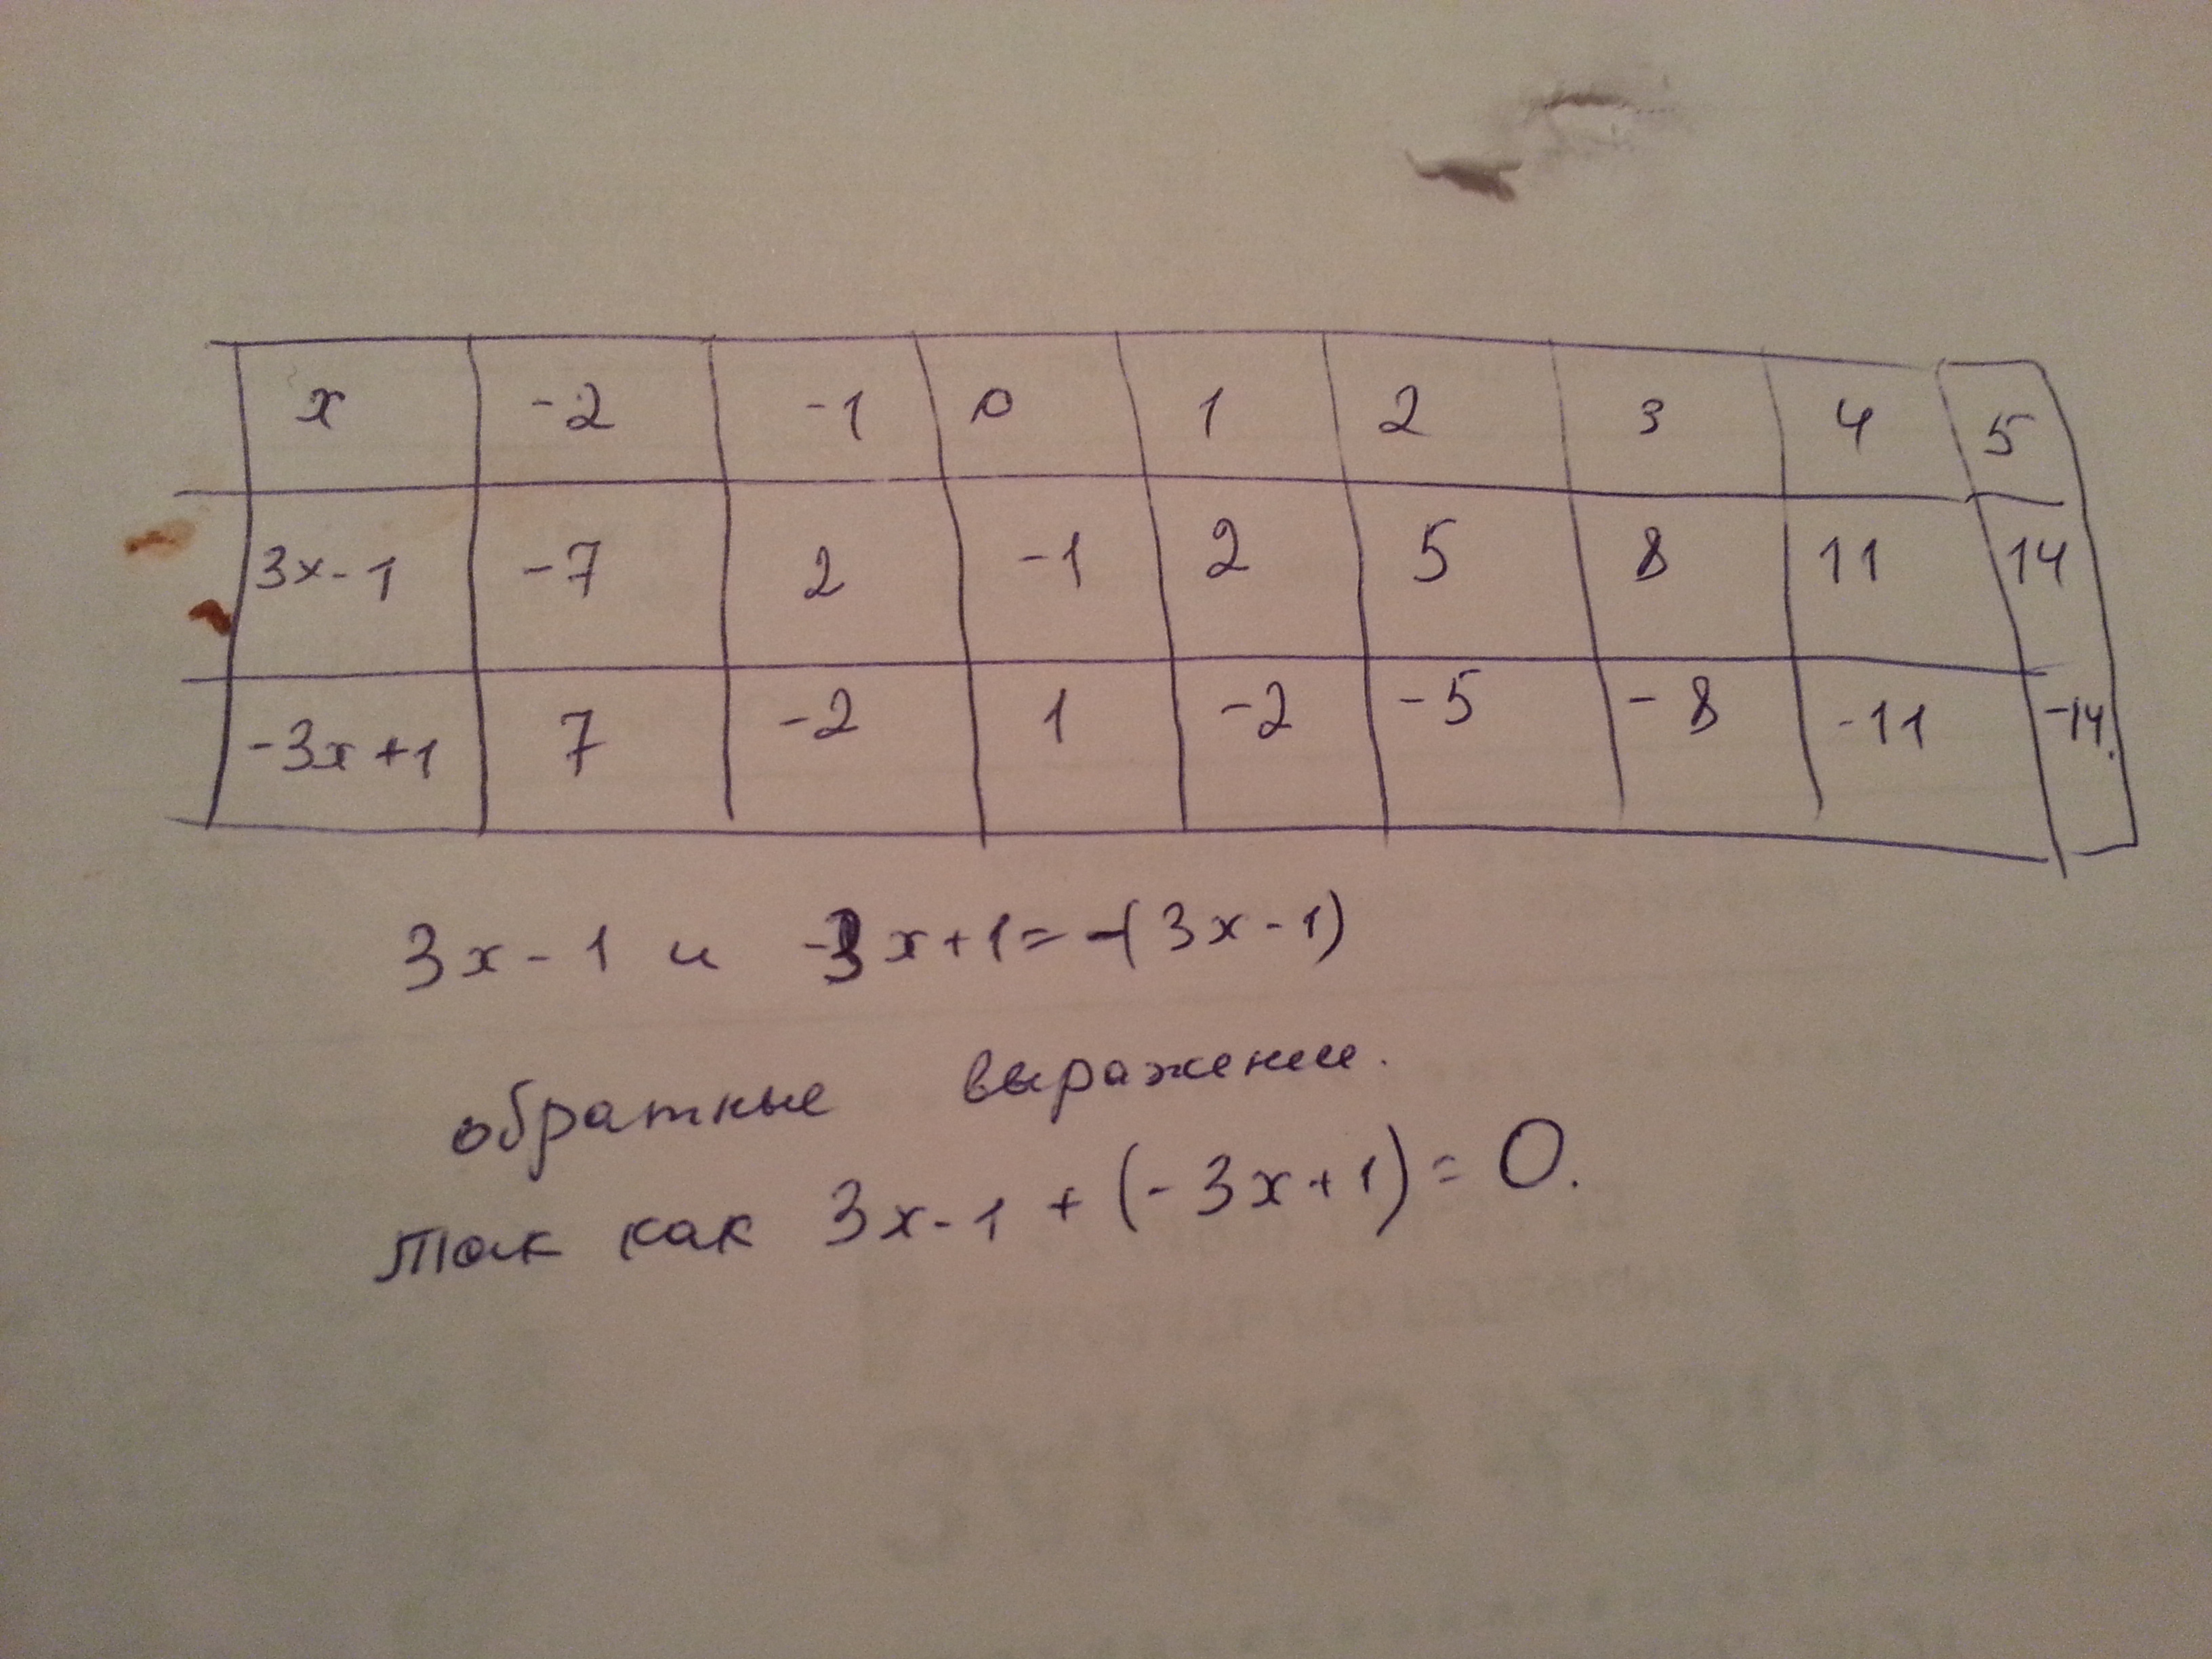 x -2 -1 0 1 2 3 4 5
3x-1 -7 2 -1 2 5 8 11 14
-3x+1 7 -2 1 -2 -5 -8 -11 -14.
3x-1 и -3x+1=-(3x-1)
обратные выражении.
так как 3x-1+(-3x+1)=0.